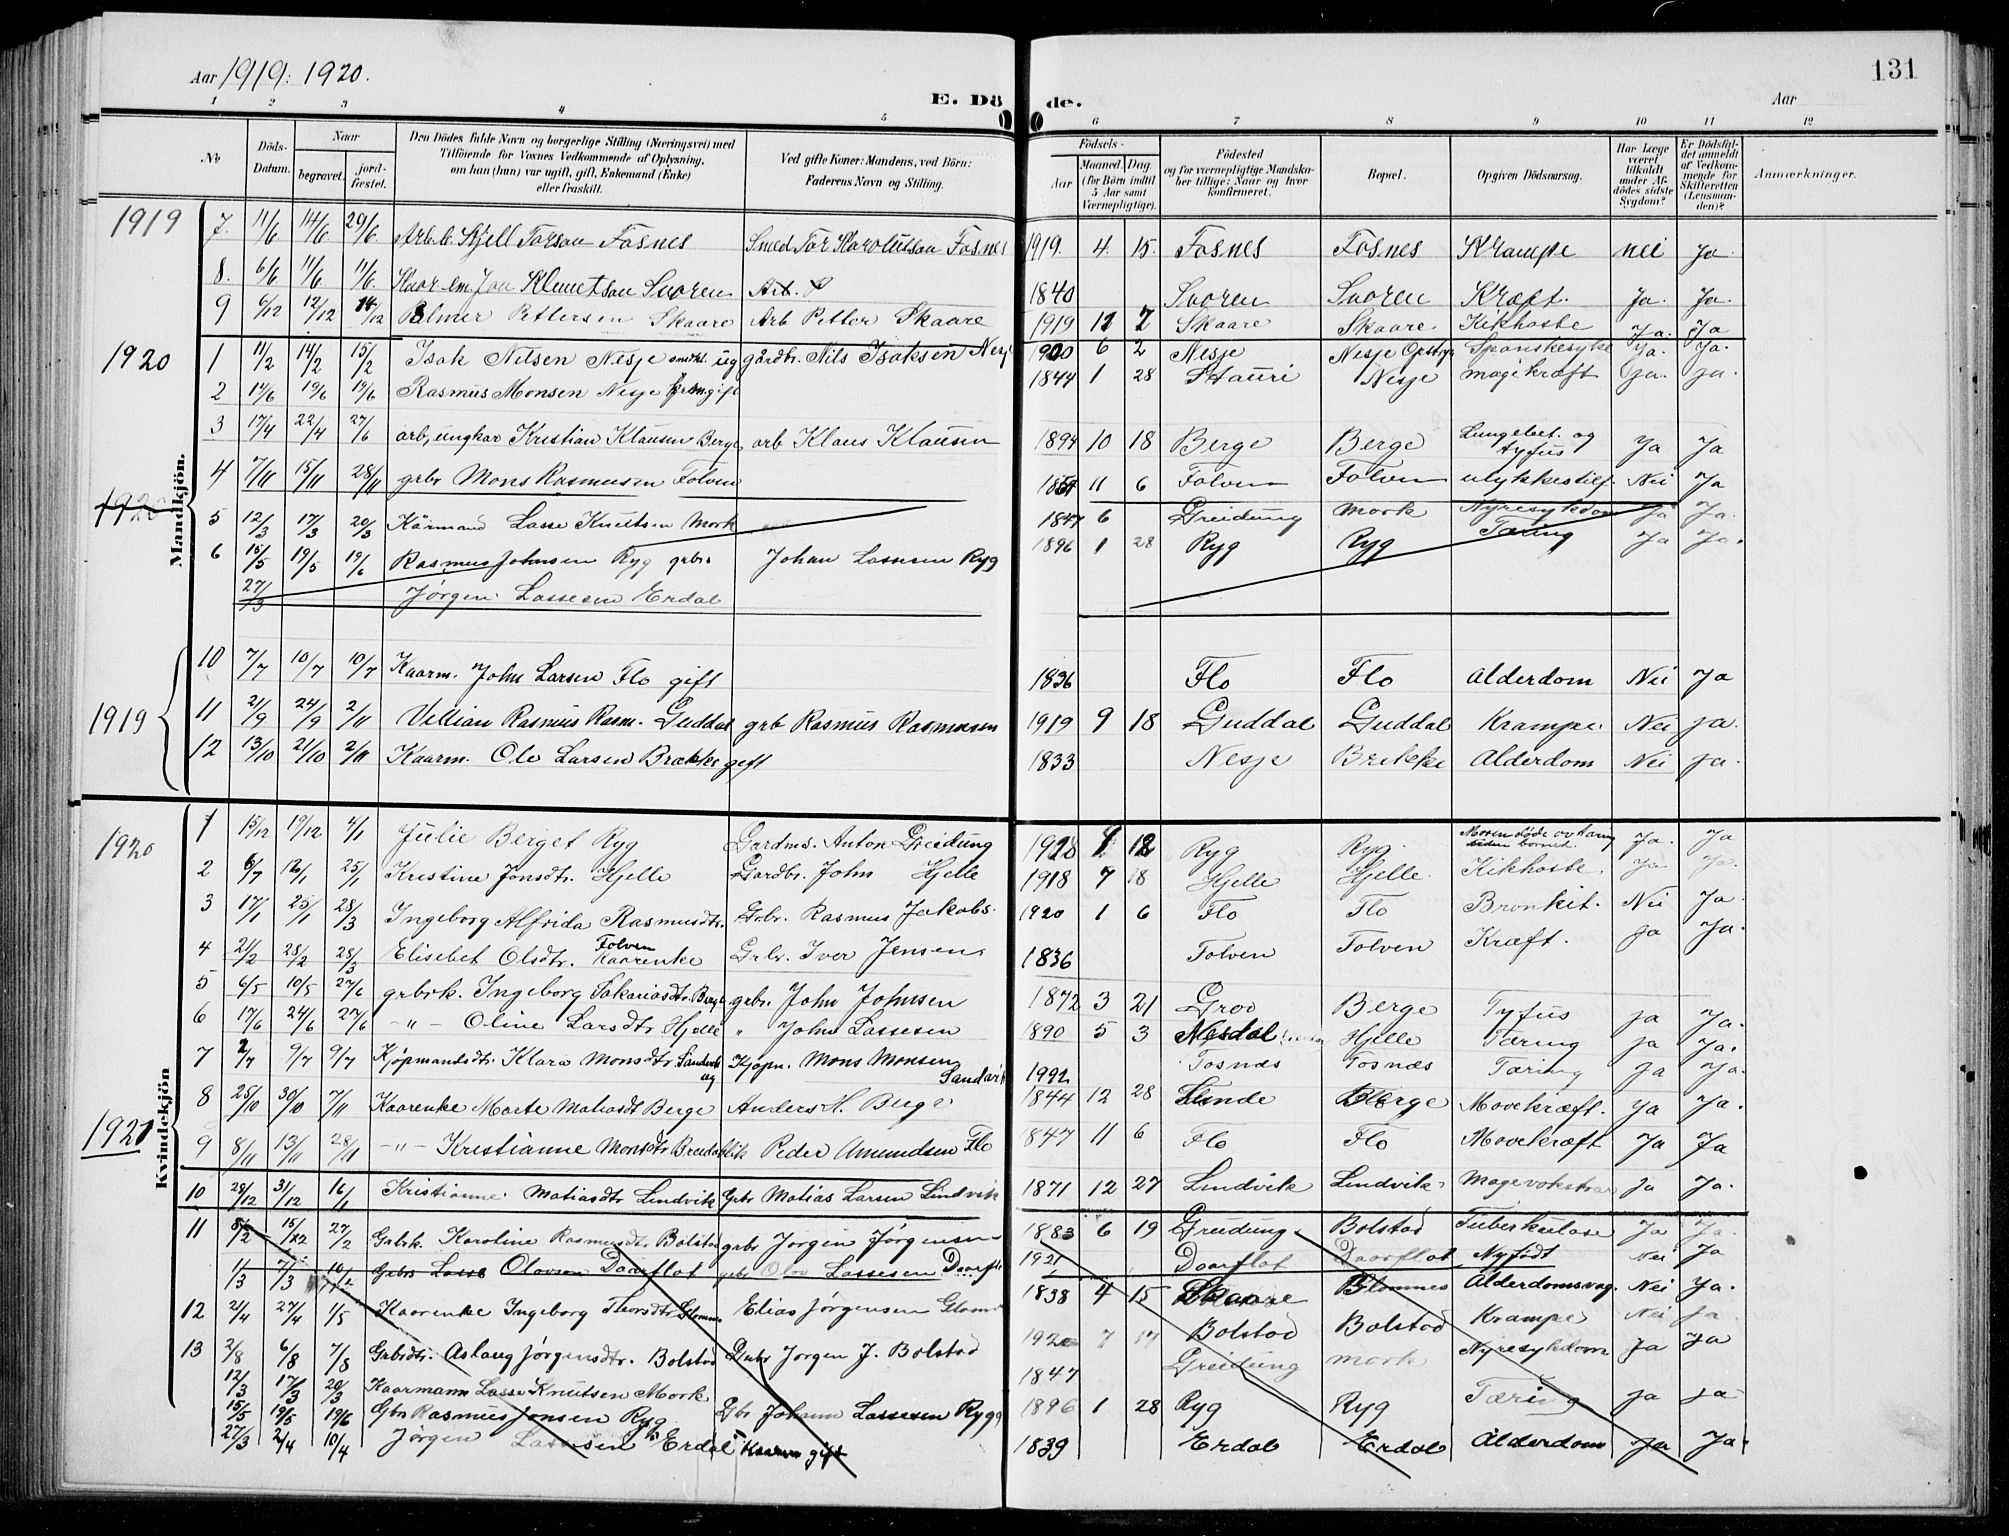 Aar 1919: 1920.
E. Dö de.
Aar
131
1 2 3 4 5 6 7 8 9 10 11 12
No
Döds-Datum.
Naar
begravet.
jord-fæstet.
Den Dödes fulde Navn og borgerlige Stilling (Næringsvei) med
Tilföiende for Voxnes Vedkommende af Oplysning,
om han (hun) var ugift, gift, Enkemand (Enke)
eller fraskilt.
Ved gifte Koner: Mandens, ved Börn:
Faderens Navn og Stilling.
Födsels-
Aar
Maaned.
Dag.
(for Börn indtil
5 Aar samt
Værnepligtige).
Födested
og for værnepligtige Mandska-
ber tillige: Naar og hvor
konfirmeret.
Bopæl.
Opgiven Dödsaarsag.
Har Læge
været
tilkaldt
under Af-
dödes sidste
Sygdom?
Er Dödsfal-
det anmeldt
af Vedkom-
mende for
Skifteretten
(Lensman-
den)?
Anmærkninger.
Mandkjön.
1919
7. 11/6 14/6 29/6 Kjell Torsen Fosnes Smed Tor Fosnes 1919. 4. 15. Fosnes Fosnes Krampe nei Ja.
8. 6/6 11/6 11/6 Jon Klemetsen Suoren 1840 Suoren Suoren Kræft. Ja. Ja.
9 6/12 12/12 14/12 Palmer Pettersen Skaare Arb Petter Skaare 1919 11 7 Skaare Skaare. Kikhoste Ja. Ja
1920
1 11/2 14/2 15/2 Isak Nilsen Nesje ug gårdbr. Nils Isaksen Nesje 1900 6 2 Nesje Nesje Spanskesyke Ja. Ja.
2 14/6 19/6 19/6 Rasmus Monsen Nesje gift 1844 1 28 Stauri Nesje magekræft Ja. Ja.
3 17/4 22/4 27/6 arb, ungkar Kristian Klausen Berge, arb Klaus Klausen 1894 10 18 Berge Berge Lungebet. og tyfus Ja Ja
4 7/11 15/11 28/11 grbr Mons Rasmusen Folven 11 6 Folven Folven ulykkestilf. Nei Ja
1920
5 12/3 17/3 20/3 Kårmand Lasse Knutsen Mork 1847 6 Greidung Mork Nyresykdom Ja Ja.
6 15/5 19/5 19/6 Rasmus Johnsen Ryg grbr. Johan Lassesen Ryg 1896 1 28 Ryg Ryg Tæring Ja Ja.
27/3 Jørgen Lassesen Erdal
1919
10 7/7 10/7 10/7 Kaarm. John Larsen Flo gift 1836 Flo Flo Alderdom Nei Ja
11 21/9 24/9 2/11 Villian Rasmus Rasm. Guddal grb Rasmus Rasmusen 1919 9 18 Guddal Guddal Krampe. Nei ja.
12 13/10 21/10 2/11 Kaarm. Ole Larsen Brække gift 1833 Nesje Brekke Alderdom Nei ja.
Kvindekjön
1920
1 15/12 19/12 4/1 Julie Berget Ryg Gardms. Anton Greidung Ryg Ryg. Moren døde av tæring siden barnet. Ja. Ja
2 6/7 25/1 Kristine Jonsdtr. Hjelle Gardbr. John Hjelle 1918 7 18 Hjelle Hjelle. Kikhoste. Ja Ja.
3 17/1 25/1 28/3 Ingeborg Alfrida Rasmusdtr. Grbr. Rasmus Jakobs. 1920 1 6 Flo Flo Bronkit. Nei Ja.
4 21/2 28/2 28/3 Elisebet Olsdtr. Folven Kaarenke Grbr. Iver Jensen 1836 Folven Folven Kræft. Ja Ja.
5 6/5 10/5 27/6 grbrk. Ingeborg Sakariasdtr Berge grbr. John Johnsen 1872 3 21 Grov Berge Tyfus ja Ja.
6 17/6 24/6 27/6 -"- Oline Larsdtr Hjelle " John Lassesen 1890 5 3 Nesdal Hjelle Tæring ja Ja.
7 2/7 9/7 9/7 Kjøpmandsdtr. Klara Monsdtr. Kjøpm. Mons Monsen Sandvik Fosnæs Fosnæs Tæring Ja Ja.
8 25/10 30/10 7/11 Kaarenke Marte Matiasdt Berge Anders H. Berge 1844 12 28 Lunde Berge Mavekræft. Ja Ja.
1921
9 8/11 13/11 28/11 -"- Kristianne Monsdtr Peder Amundsen Flo 1847 11 6 Flo Flo Mavekræft Ja Ja
10 28/12 31/12 16/1 Kristianne Matiasdtr Lindvik Gbr Matias Larsen Lindvik 1871 12 27 Lindvik Lindvik Ja Ja.
11 27/2 Gbrk. Karoline Rasmusdtr Bolstad grbr Jørgen Jørgensen 1883 6 19 Greidung Bolstad Tuberkulose Ja Ja.
1/3 7/3 Grbr Lasse Olavson Daarflot grbr Olav Lassesen 1921 Daarflot Daarflot Nyfødt Nei Ja
12 2/4 27/4 1/5 Kaarenke Ingeborg Thorsdtr Elias Jørgensen 1838 4 15 Skaare Alderdomsvag. Nei Ja.
13 2/8 6/8 7/8 Grbrdtr. Aslaug Jørgensdtr. Bolstad Grbr Jørgen J. Bolstad 7 17 Bolstad Bolstad Krampe Nei Ja
12/3 17/3 20/3 Kaarmann Lasse Knutsen Mork 1847 Greidung Mork Nyresykdom Ja Ja
15/5 19/5 19/6 Gbr Rasmus Jonsen Ryg Gbr Johann Lassesen Rygg 1896 1 28 Ryg Ryg Tæring Ja Ja
27/3 2/4 10/4 Jørgen Lassesen Erdal Kaarm gift 1839 Erdal Erdal Alderdom Ja Ja.